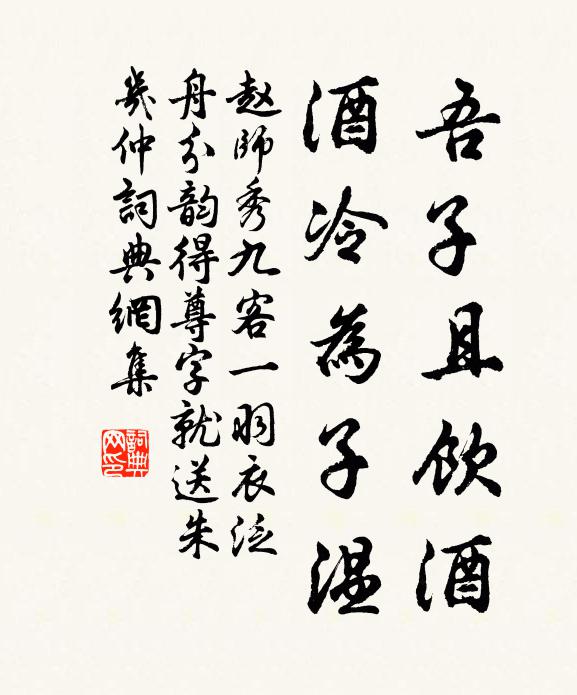 吾子且飲酒
酒冷為子温
赵師秀九客一羽衣泛
舟分韵得尊字就送朱
幾仲詞典網集
詞典
网印